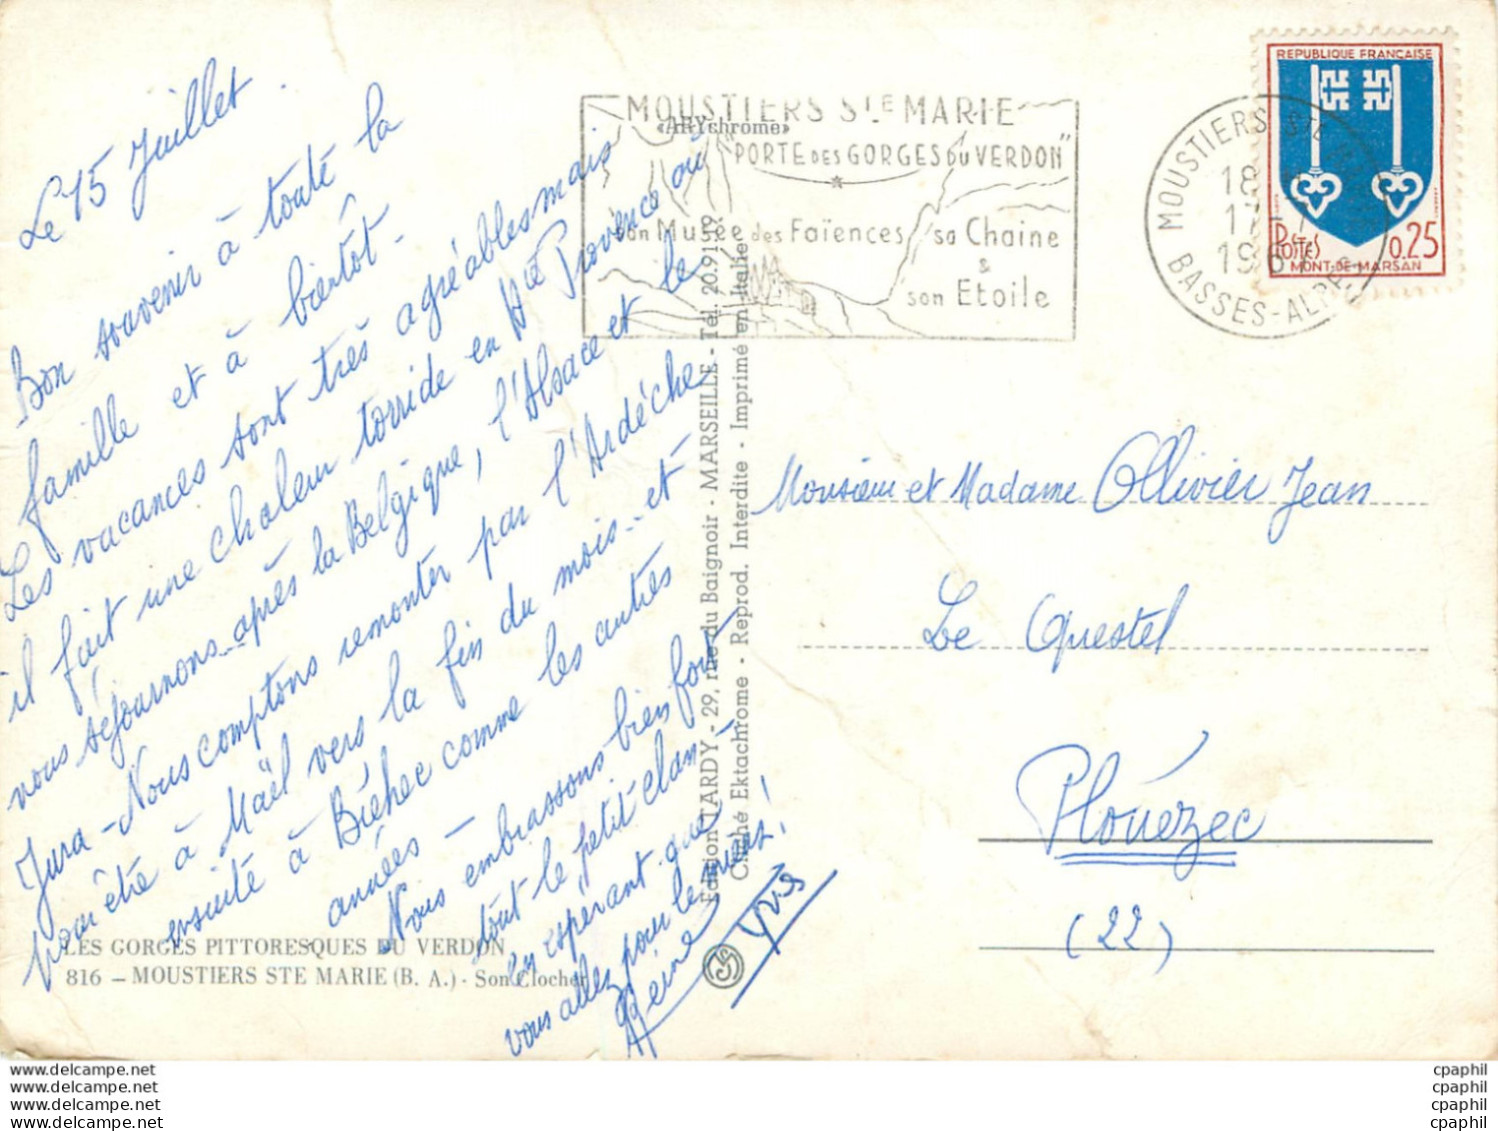 Le 15 Juillet.
Bon souvenir à toute la
famille et à bientôt.
Les vacances sont très agréables mais
il fait une chaleur torride en Hte Provence où
nous séjournons après la Belgique, l'Alsace et le
Jura - Nous comptons remonter par l'Ardèche
pour être à Maël vers la fin du mois - et
ensuite à Bréhec comme les autres
années -
Nous embrassons bien fort
tout le petit clan -
en espérant que
vous allez pour le mieux !
Reine Yves
LES GORGES PITTORESQUES DU VERDON
816 - MOUSTIERS STE MARIE (B. A.) - Son Clocher
Edition TARDY - 29, rue du Baignoir - MARSEILLE - Tél. 20.91.19
Cliché Ektachrome - Reprod. Interdite - Imprimé en Italie
«ARYchrome»
MOUSTIERS Ste MARIE
"PORTE DES GORGES DU VERDON"
son Musée des Faïences sa Chaine
&
son Etoile
MOUSTIERS STE
18
17
196
BASSES-ALPES
REPUBLIQUE FRANÇAISE
POSTES 0.25
MONT-DE-MARSAN
Monsieur et Madame Ollivier Jean
Le Questel
Plouézec
(22)
www.delcampe.net
www.delcampe.net
www.delcampe.net
www.delcampe.net
cpaphil
cpaphil
cpaphil
cpaphil